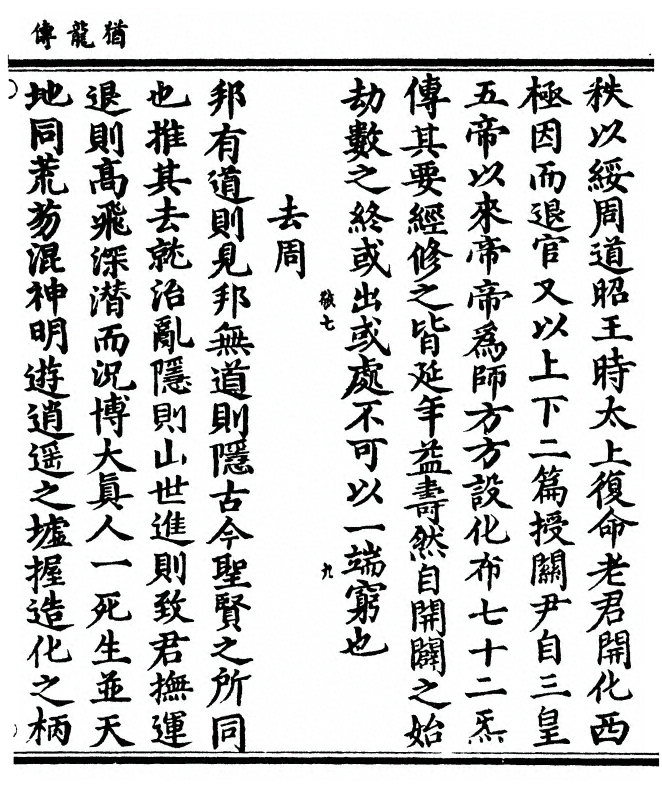 猶龍傳
秩以綏周道昭王時太上復命老君開化西
極因而退官又以上下二篇授關尹自三皇
五帝以來帝帝為師方方設化布七十二炁
傳其要經修之皆延年益壽然自開闢之始
劫數之終或出或處不可以一端窮也
敬七
九
去周
邦有道則見邦無道則隱古今聖賢之所同
也推其去就治亂隱則山世進則致君撫運
退則高飛深潜而況博大真人一死生並天
地同荒芴混神明遊逍遥之墟握造化之柄